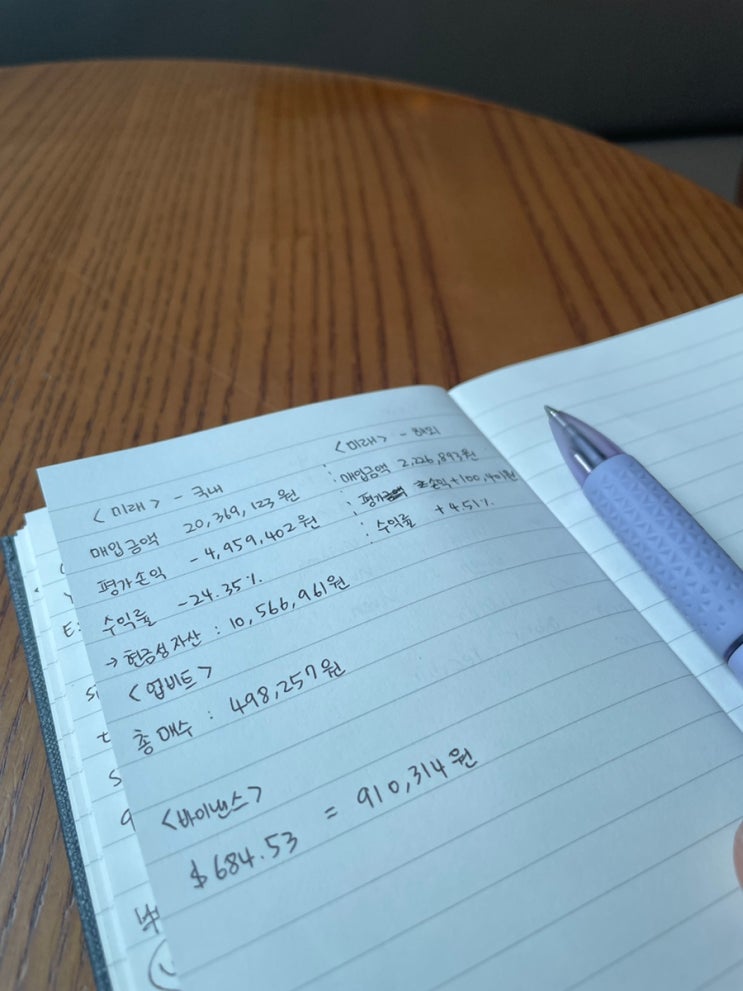 <미래> - 국내
매입금액 20,369,123원
평가손익 -4,959,402원
수익률 -24.35%
→ 현금성자산 : 10,566,961원
<미래> - 해외
: 매입금액 2,226,893원
: 평가 손익+100,401원
: 수익률 +4.51%
<업비트>
총매수 : 498,257원
<바이낸스>
$684.53 = 910,314원